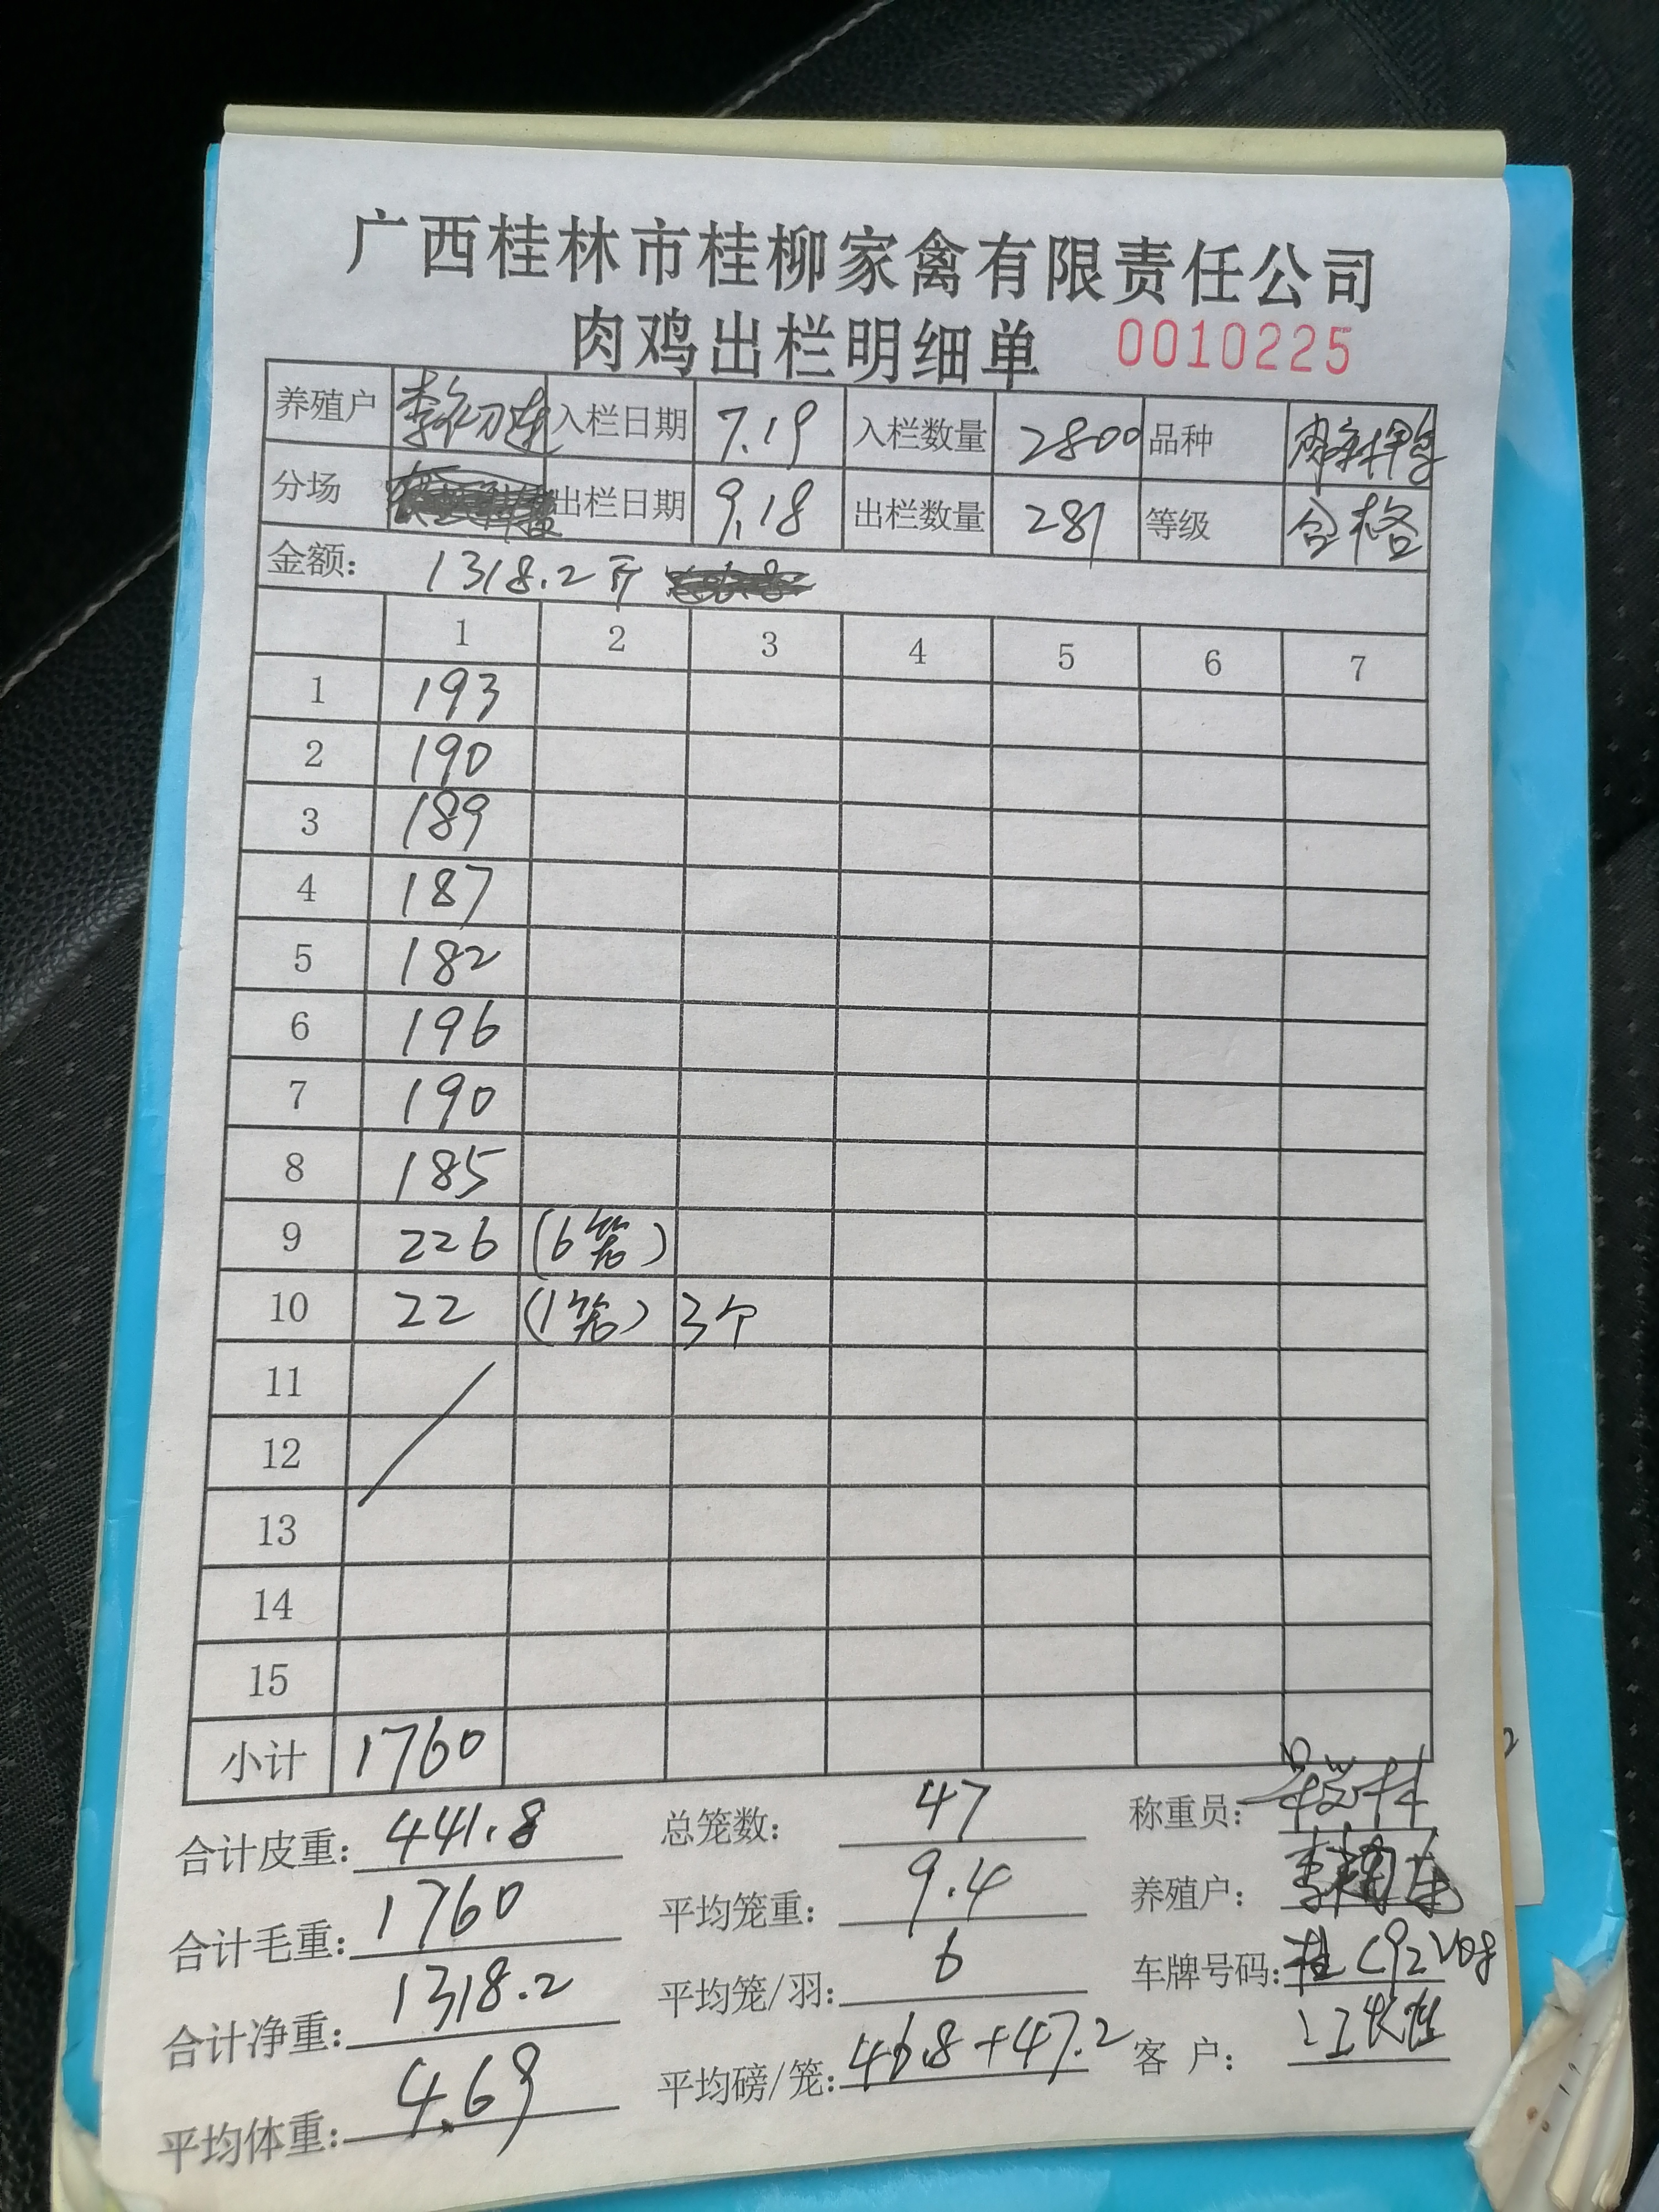 广西桂林市桂柳家禽有限责任公司
肉鸡出栏明细单 0010225
养殖户 李初连 入栏日期 7.19 入栏数量 2800 品种
分场 出栏日期 9.18 出栏数量 281 等级 合格
金额: 1318.2斤
1 2 3 4 5 6 7
1 193
2 190
3 189
4 187
5 182
6 196
7 190
8 185
9 226 (6笼)
10 22 (1笼) 3个
11
12
13
14
15
小计 1760
合计皮重: 441.8 总笼数: 47 称重员:
合计毛重: 1760 平均笼重: 9.4 养殖户:
合计净重: 1318.2 平均笼/羽: 6 车牌号码: 桂
平均体重: 4.69 平均磅/笼: 46.8+47.2 客 户: